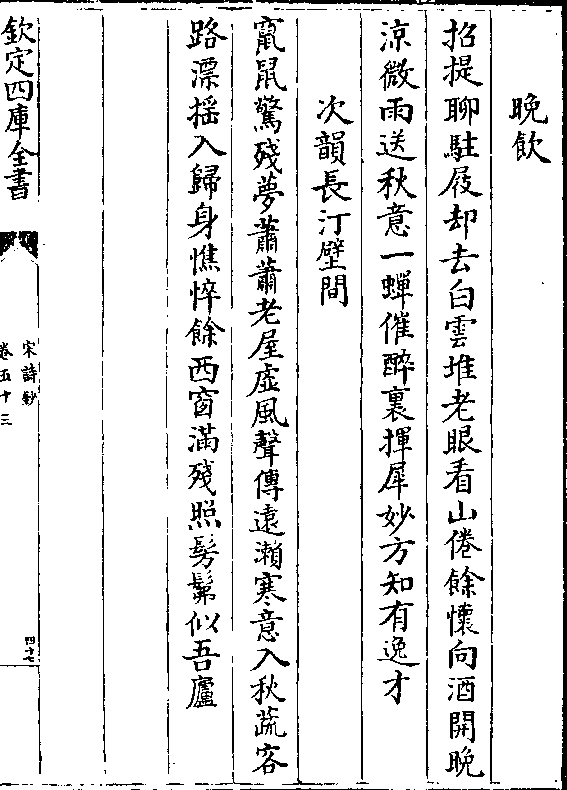 晩飲
招提聊駐屐却去白雲堆老眼看山倦餘懷向酒開晩
涼微雨送秋意一蟬催醉裏揮犀妙方知有逸才
次韻長汀壁間
竄鼠驚殘夢蕭蕭老屋虛風聲傳遠瀨寒意入秋蔬客
路漂揺入歸身憔悴餘西窗滿殘照髣髴似吾廬
欽定四庫全書
宋詩鈔
卷五十三
四十七